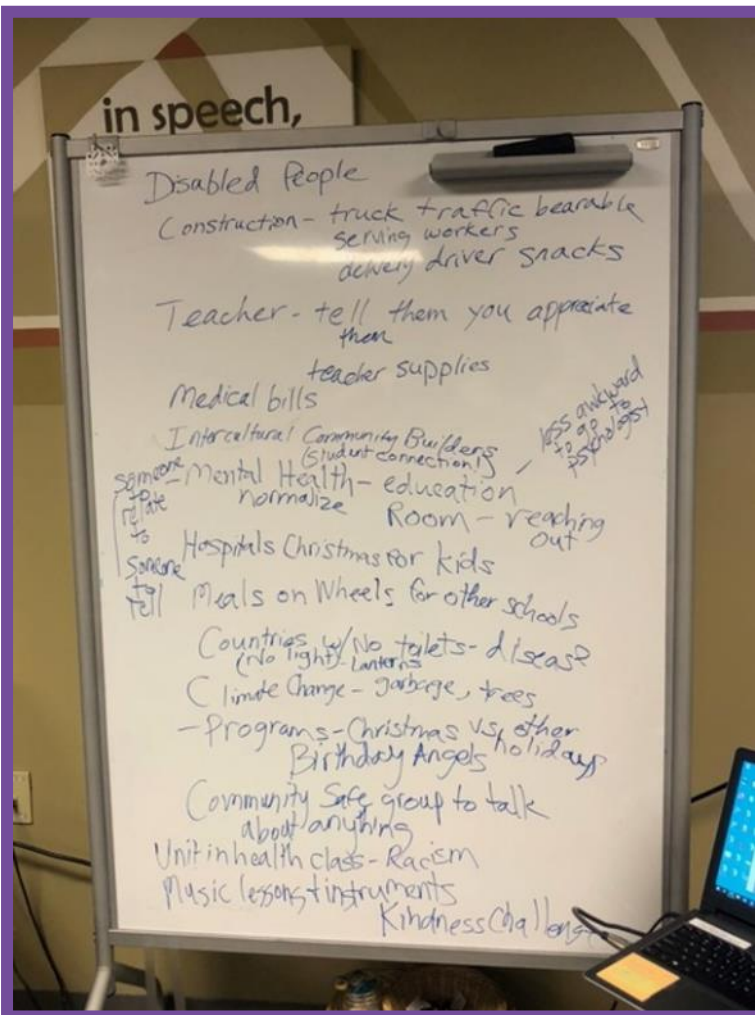 in speech,
Disabled People
Construction - truck traffic bearable
serving workers
delivery driver snacks
Teacher - tell them you appreciate
them
teacher supplies
Medical bills
less awkward
to go to
psychologist
Intercultural Community Builders
(student connection!)
someone
to
relate
to
someone
to
tell
- Mental Health - education
normalize
Room - reaching
out
Hospitals Christmas for kids
Meals on Wheels for other schools
Countries w/ No toilets - disease
(No light) - Lanterns
Climate Change - garbage, trees
- Programs - Christmas vs. other
holidays
Birthday Angels
Community Safe group to talk
about anything
Unit in health class - Racism
Music lessons + instruments
Kindness Challenge